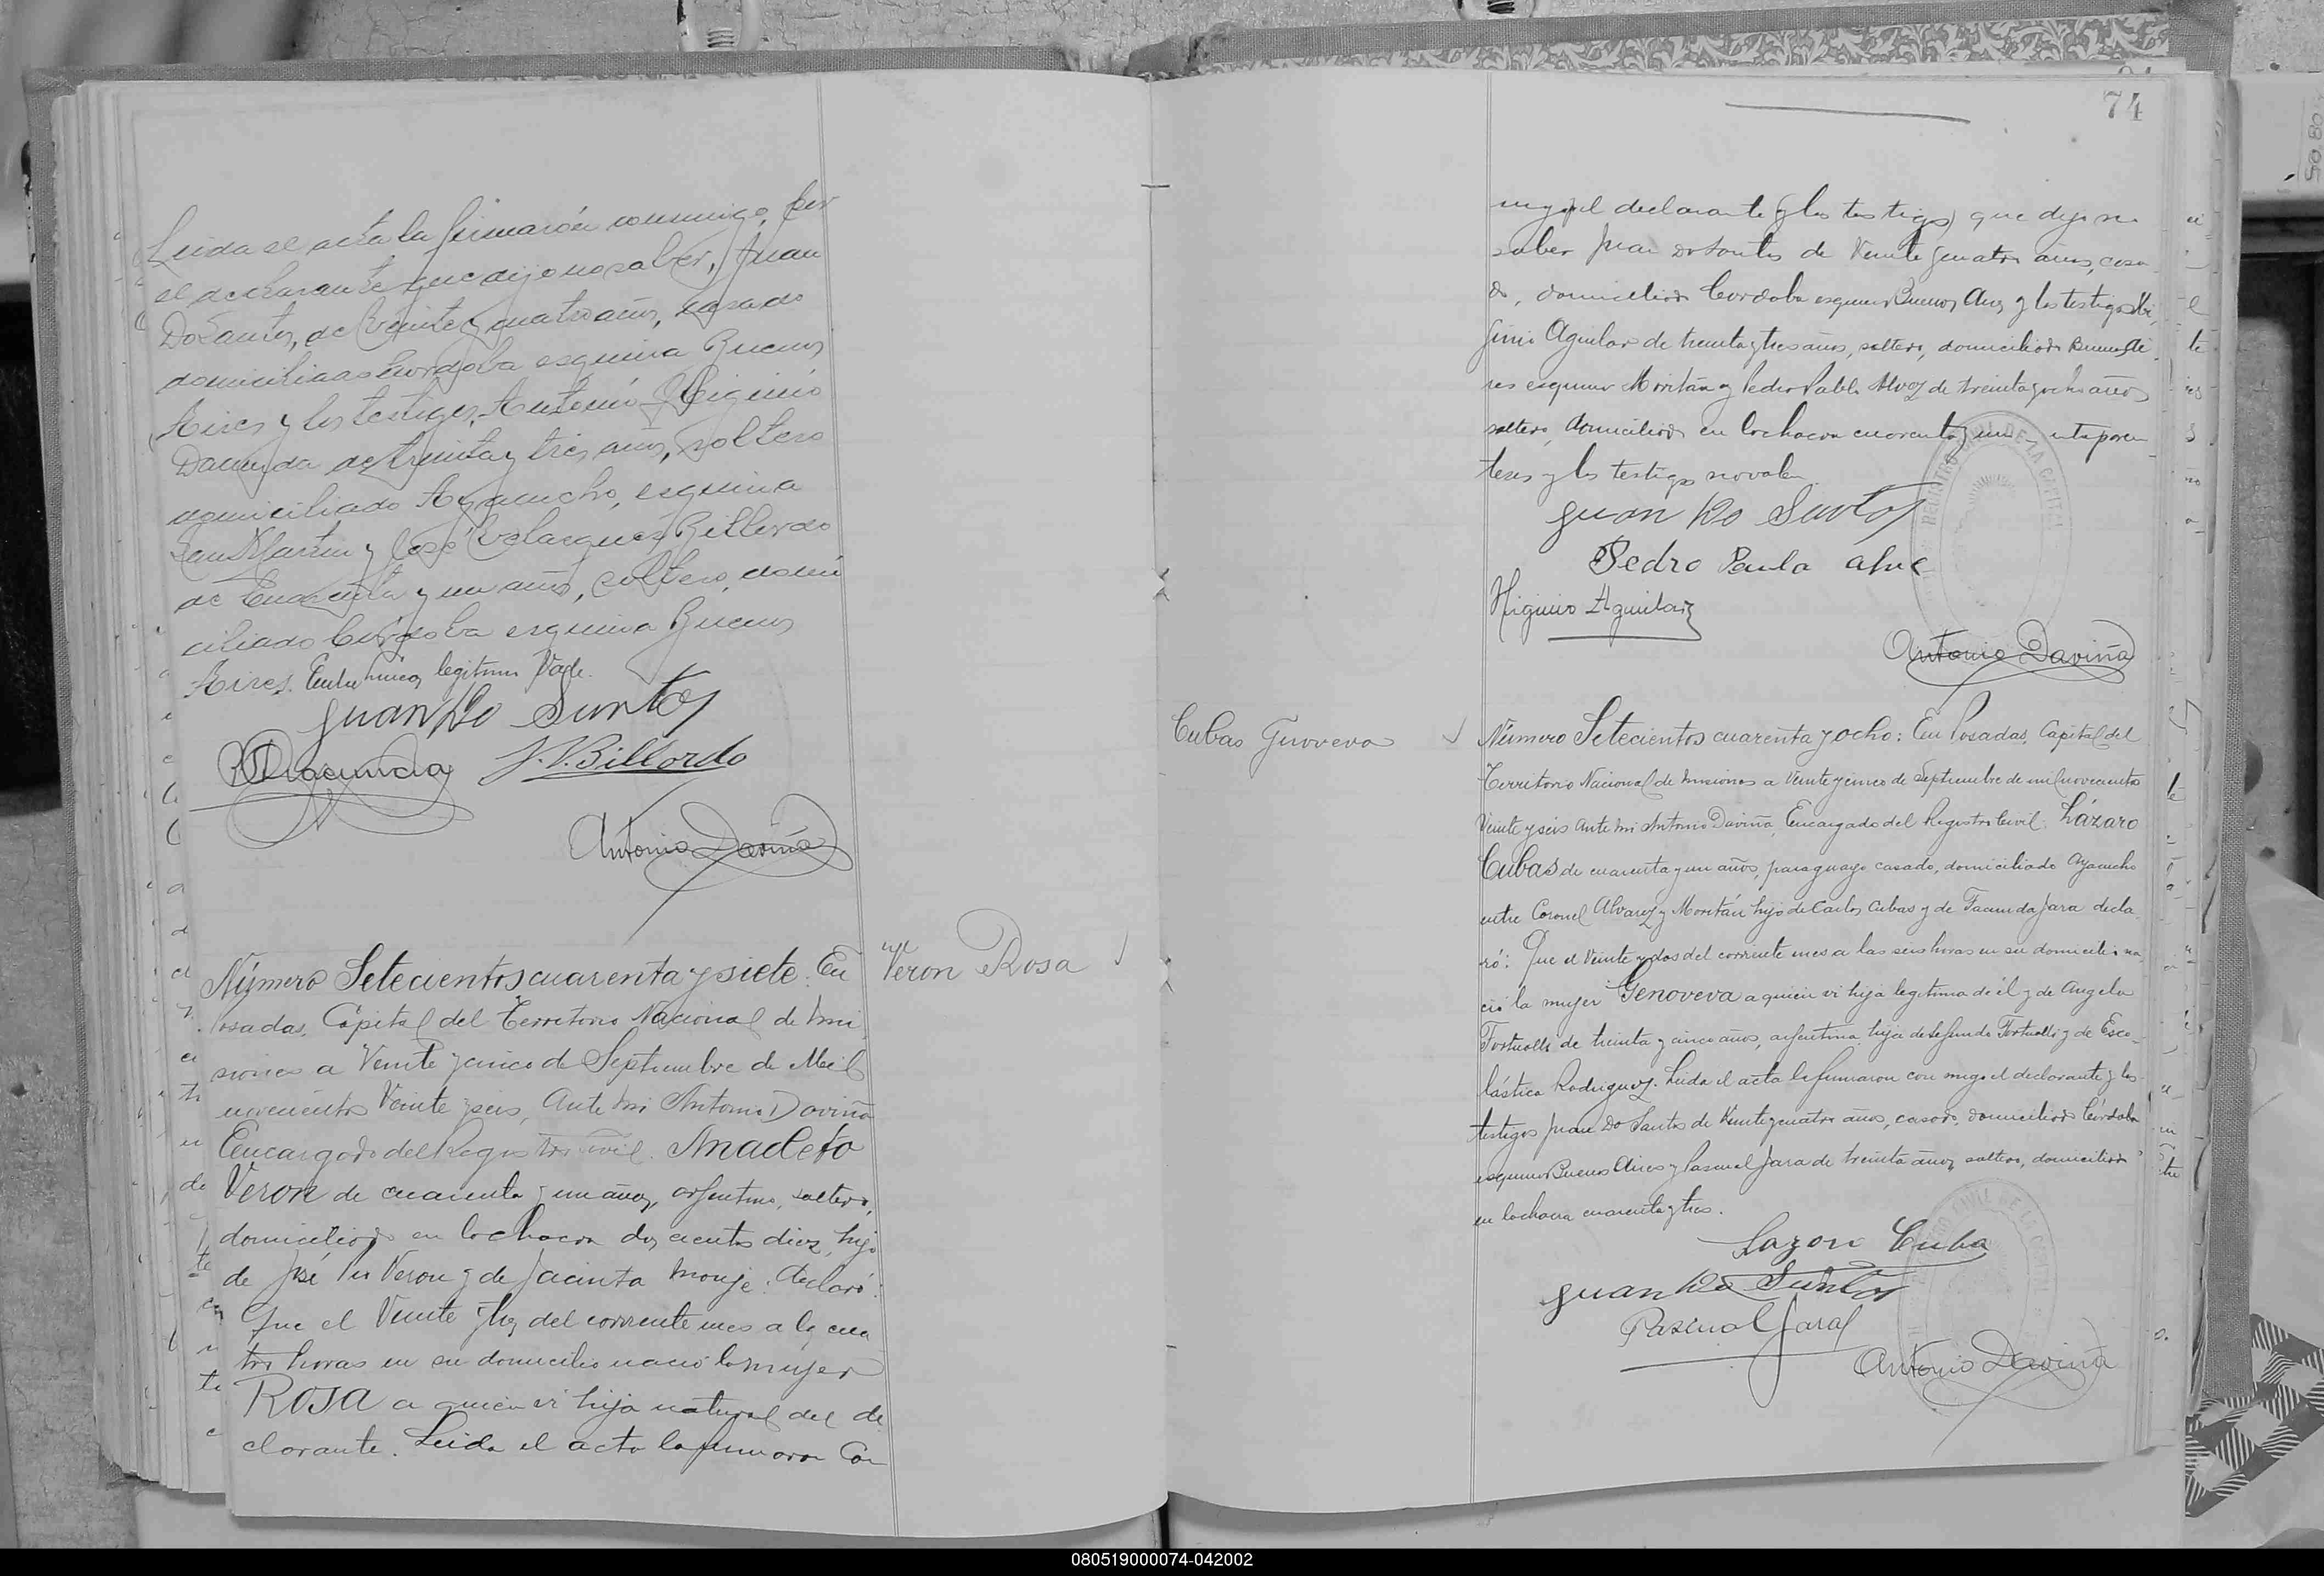 Leida el acta la firmarón conmigo, por
el declarante que dijo no saber, Juan
Do Santos, de veinte y cuatro años, casado
domiciliado Cordoba esquina Buenos
Aires y los testigos, Antonio Higinio
de treinta y tres años, soltero
domiciliado Ayacucho, esquina
San Martin y José Velasquez Billordo
de cuarenta y un años, soltero, domi
ciliado Cordoba esquina Buenos
Aires. legitima Vale.
Juan Do Santos
J. V. Billordo
Antonio Daviña
Número Setecientos cuarenta y siete: En
Posadas, Capital del Territorio Nacional de Misi
siones a Veinte y cinco de Septiembre de Mil
novecientos Veinte y seis, Ante mi Antonio Daviña
Encargado del Registro Civil. Anacleto
Veron de cuarenta y un años, argentino, soltero,
domiciliado en la chacra dos cientos diez, hijo
de José Veron y de Jacinta Monje. declaró:
Que el Veinte y tres del corriente mes a las cua
tro horas en su domicilio nació la mujer
ROSA a quien vi hija natural del de
clarante. Leida el acta la firmaron con
Veron Rosa
74
migo, el declarante (y los testigos) que dijo no
saber Juan Do Santos de Veinte y cuatro años, casa
do, domiciliado Cordoba esquina Buenos Aires y los testigos Hi
ginio Aguilar de treinta y tres años, soltero, domiciliado Buenos Ai
res esquina Moritán y Pedro Pablo Alvez de treinta y ocho años
soltero, domiciliado en la chacra cuarenta y uno entre paren
tesis y los testigos no valen.
Juan Do Santos
Pedro Paula Alve
Higinio Aguilar
Antonio Daviña
Cubas Genoveva
Número Setecientos cuarenta y ocho: En Posadas, Capital del
Territorio Nacional de Misiones a Veinte y cinco de Septiembre de mil novecientos
Veinte y seis Ante mi Antonio Daviña, Encargado del Registro Civil. Lázaro
Cubas de cuarenta y un años, paraguayo casado, domiciliado Ayacucho
entre Coronel Alvarez y Moritán hijo de Carlos Cubas y de Facunda Jara decla
ró: Que el Veinte y dos del corriente mes a las seis horas en su domicilio na
ció la mujer Genoveva a quien vi hija legitima de él y de Angela
de treinta y cinco años, argentina hija de Segundo y de Esco
lástica Rodriguez. Leida el acta la firmaron con migo el declarante y los
testigos Juan Do Santos de Veinte y cuatro años, casado, domiciliado Córdoba
esquina Buenos Aires y Pascual Jara de treinta años, soltero, domiciliado
en la chacra cuarenta y tres.
Lazaro Cuba
Juan Do Santos
Pascual Jara
Antonio Daviña
080519000074-042002